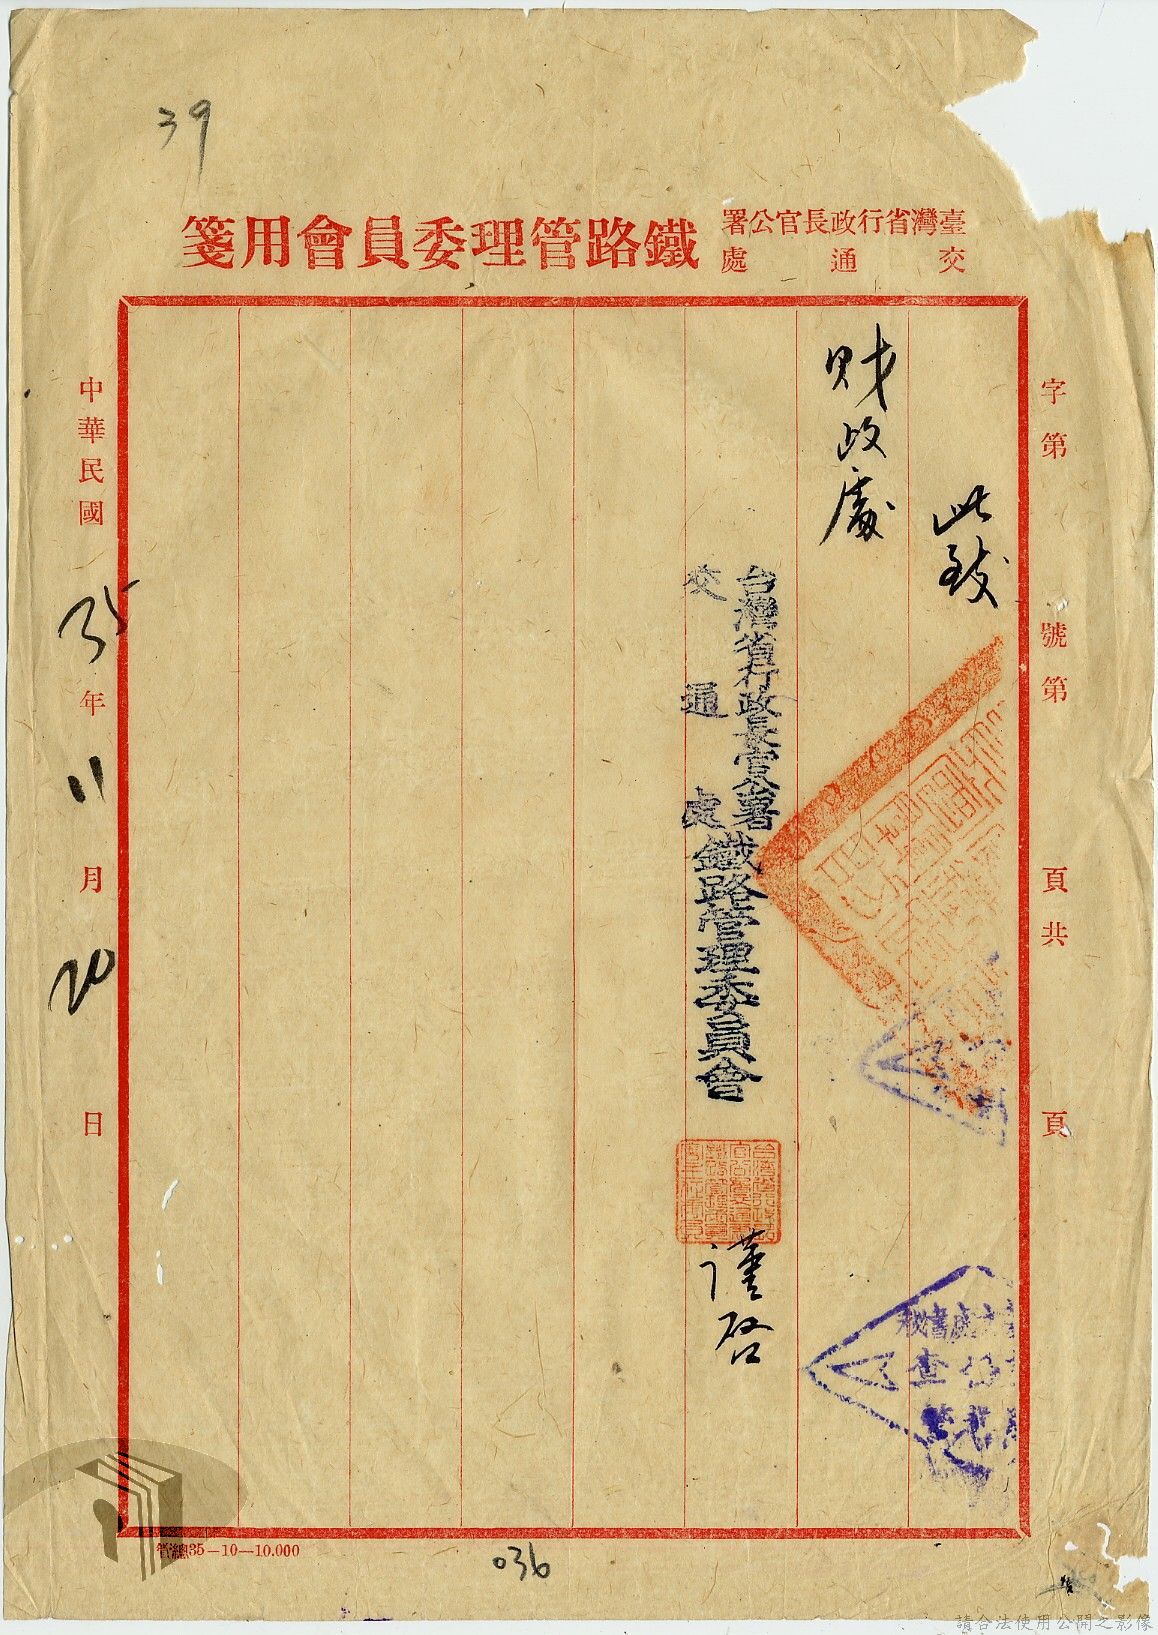 39
臺灣省行政長官公署
交通處
鐵路管理委員會用箋
字第　號第　頁共　頁
此致
財政處
台灣省行政長官公署
交通處
鐵路管理委員會
謹啓
中華民國35年11月20日
管總35—10—10.000
036
請合法使用公開之影像